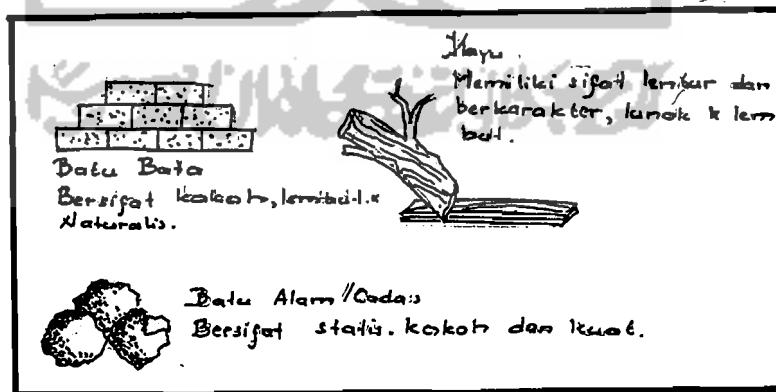 Kayu.
Memiliki sifat lentur dan
berkarakter, lunak & lem
but.
Batu Bata
Bersifat kokoh, lembut &
Naturalis.
Batu Alam // Cadas
Bersifat statis. kokoh dan kuat.